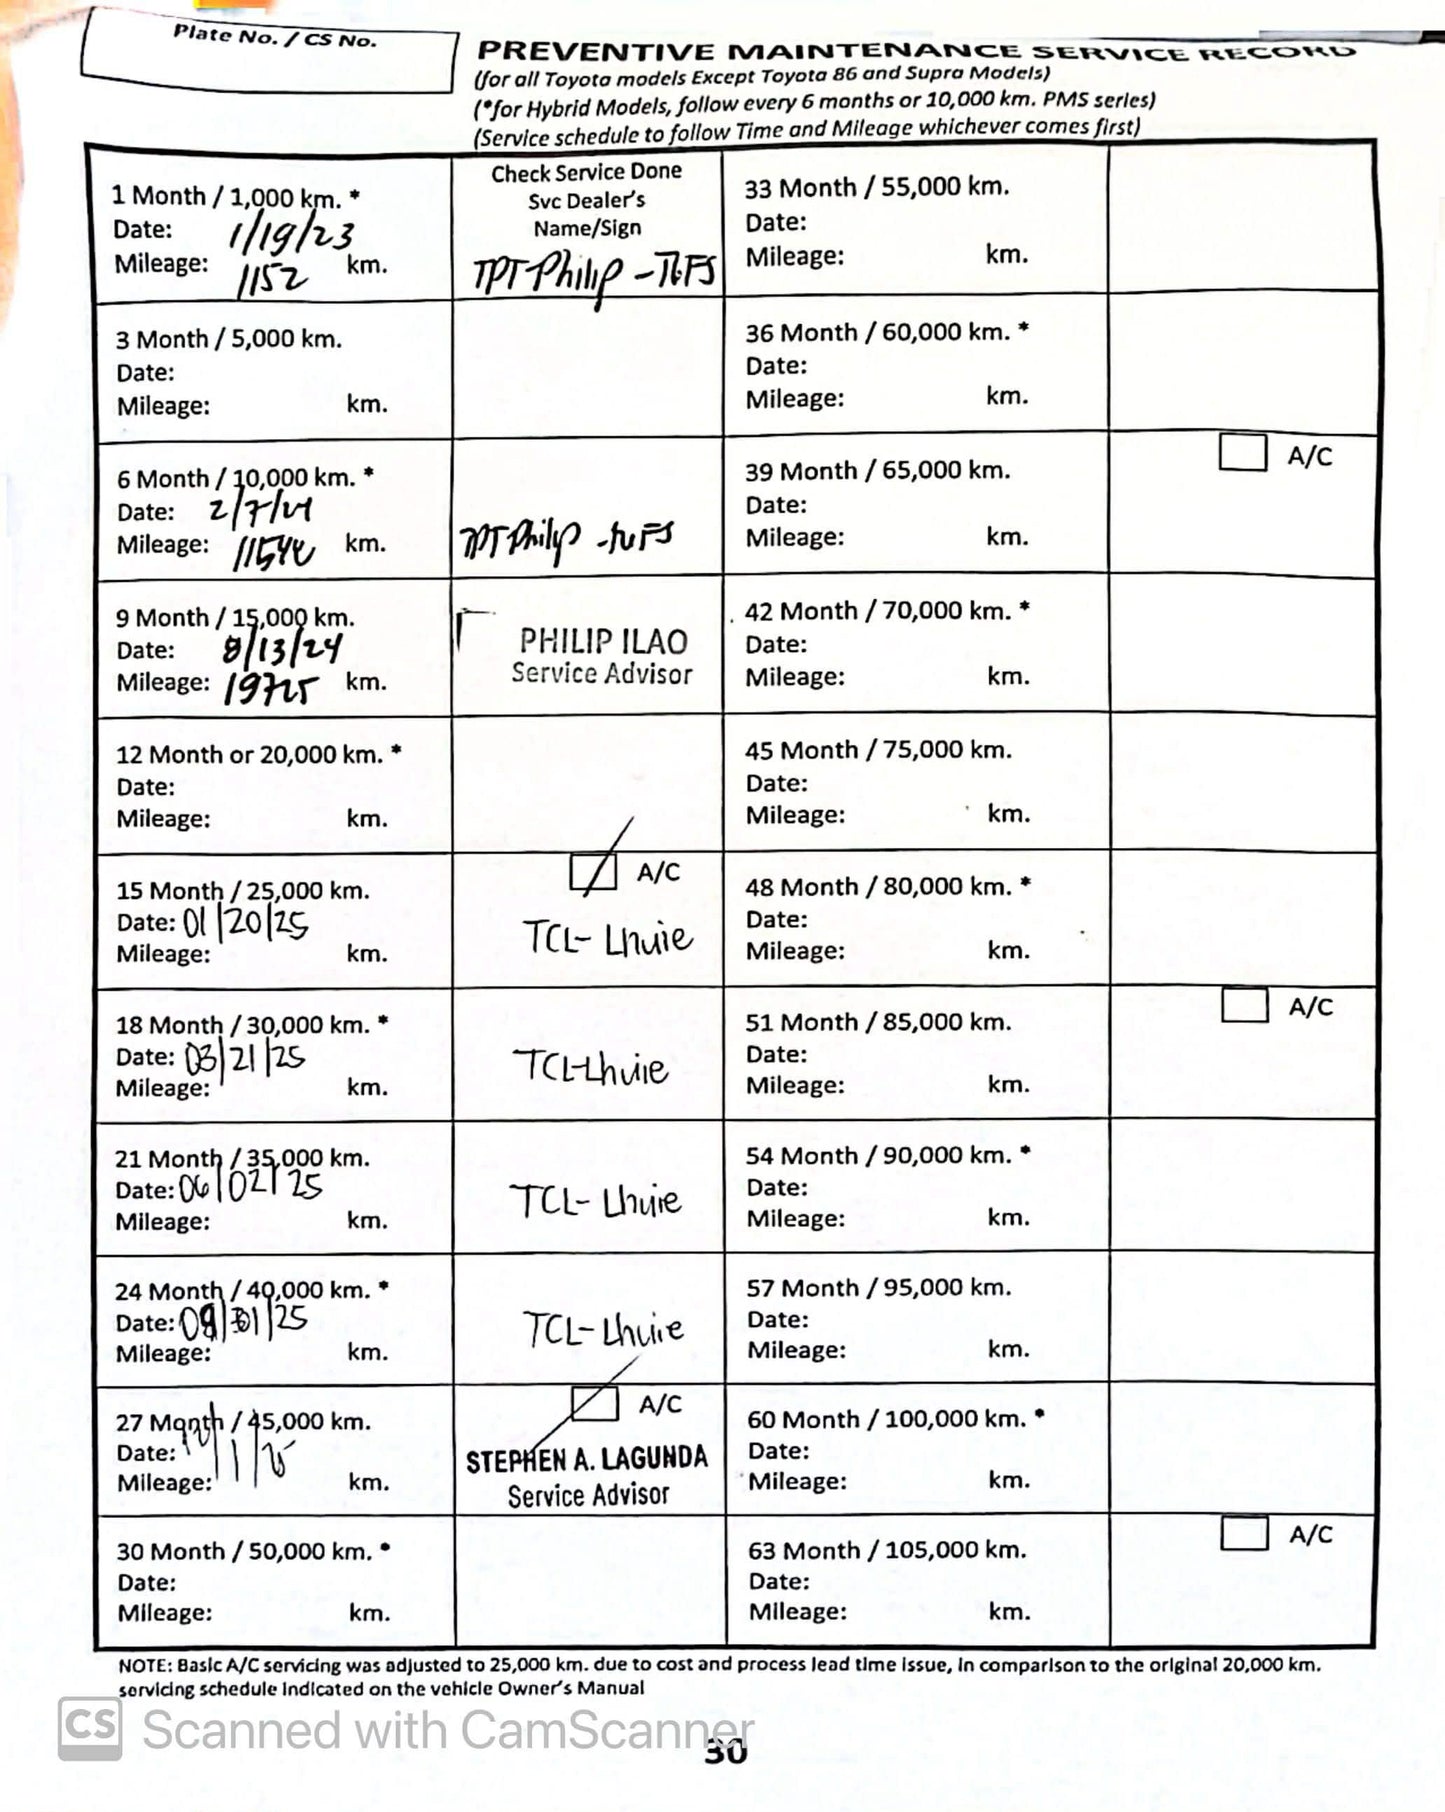 Plate No. / CS No.
PREVENTIVE MAINTENANCE SERVICE RECORD
(for all Toyota models Except Toyota 86 and Supra Models)
(*for Hybrid Models, follow every 6 months or 10,000 km. PMS series)
(Service schedule to follow Time and Mileage whichever comes first)
1 Month / 1,000 km. *
Date: 1/19/23
Mileage: 1152 km.
Check Service Done
Svc Dealer's
Name/Sign
TPT-Philip
3 Month / 5,000 km.
Date:
Mileage: km.
6 Month / 10,000 km. *
Date: 2/7/24
Mileage: km.
TPT Philip
9 Month / 15,000 km.
Date: 8/13/24
Mileage: 19725 km.
PHILIP ILAO
Service Advisor
12 Month or 20,000 km. *
Date:
Mileage: km.
15 Month / 25,000 km.
Date: 01/20/25
Mileage: km.
A/C
TCL- Lhuie
18 Month / 30,000 km. *
Date: 03/21/25
Mileage: km.
TCL-Lhuie
21 Month / 35,000 km.
Date: 06/02/25
Mileage: km.
TCL- Lhuie
24 Month / 40,000 km. *
Date:
Mileage: km.
TCL- Lhuie
27 Month / 45,000 km.
Date:
Mileage: km.
A/C
STEPHEN A. LAGUNDA
Service Advisor
30 Month / 50,000 km. *
Date:
Mileage: km.
33 Month / 55,000 km.
Date:
Mileage: km.
36 Month / 60,000 km. *
Date:
Mileage: km.
39 Month / 65,000 km.
Date:
Mileage: km.
A/C
42 Month / 70,000 km. *
Date:
Mileage: km.
45 Month / 75,000 km.
Date:
Mileage: km.
48 Month / 80,000 km. *
Date:
Mileage: km.
51 Month / 85,000 km.
Date:
Mileage: km.
A/C
54 Month / 90,000 km. *
Date:
Mileage: km.
57 Month / 95,000 km.
Date:
Mileage: km.
60 Month / 100,000 km. *
Date:
Mileage: km.
63 Month / 105,000 km.
Date:
Mileage: km.
A/C
NOTE: Basic A/C servicing was adjusted to 25,000 km. due to cost and process lead time issue, in comparison to the original 20,000 km.
servicing schedule indicated on the vehicle Owner's Manual
CS Scanned with CamScanner
30